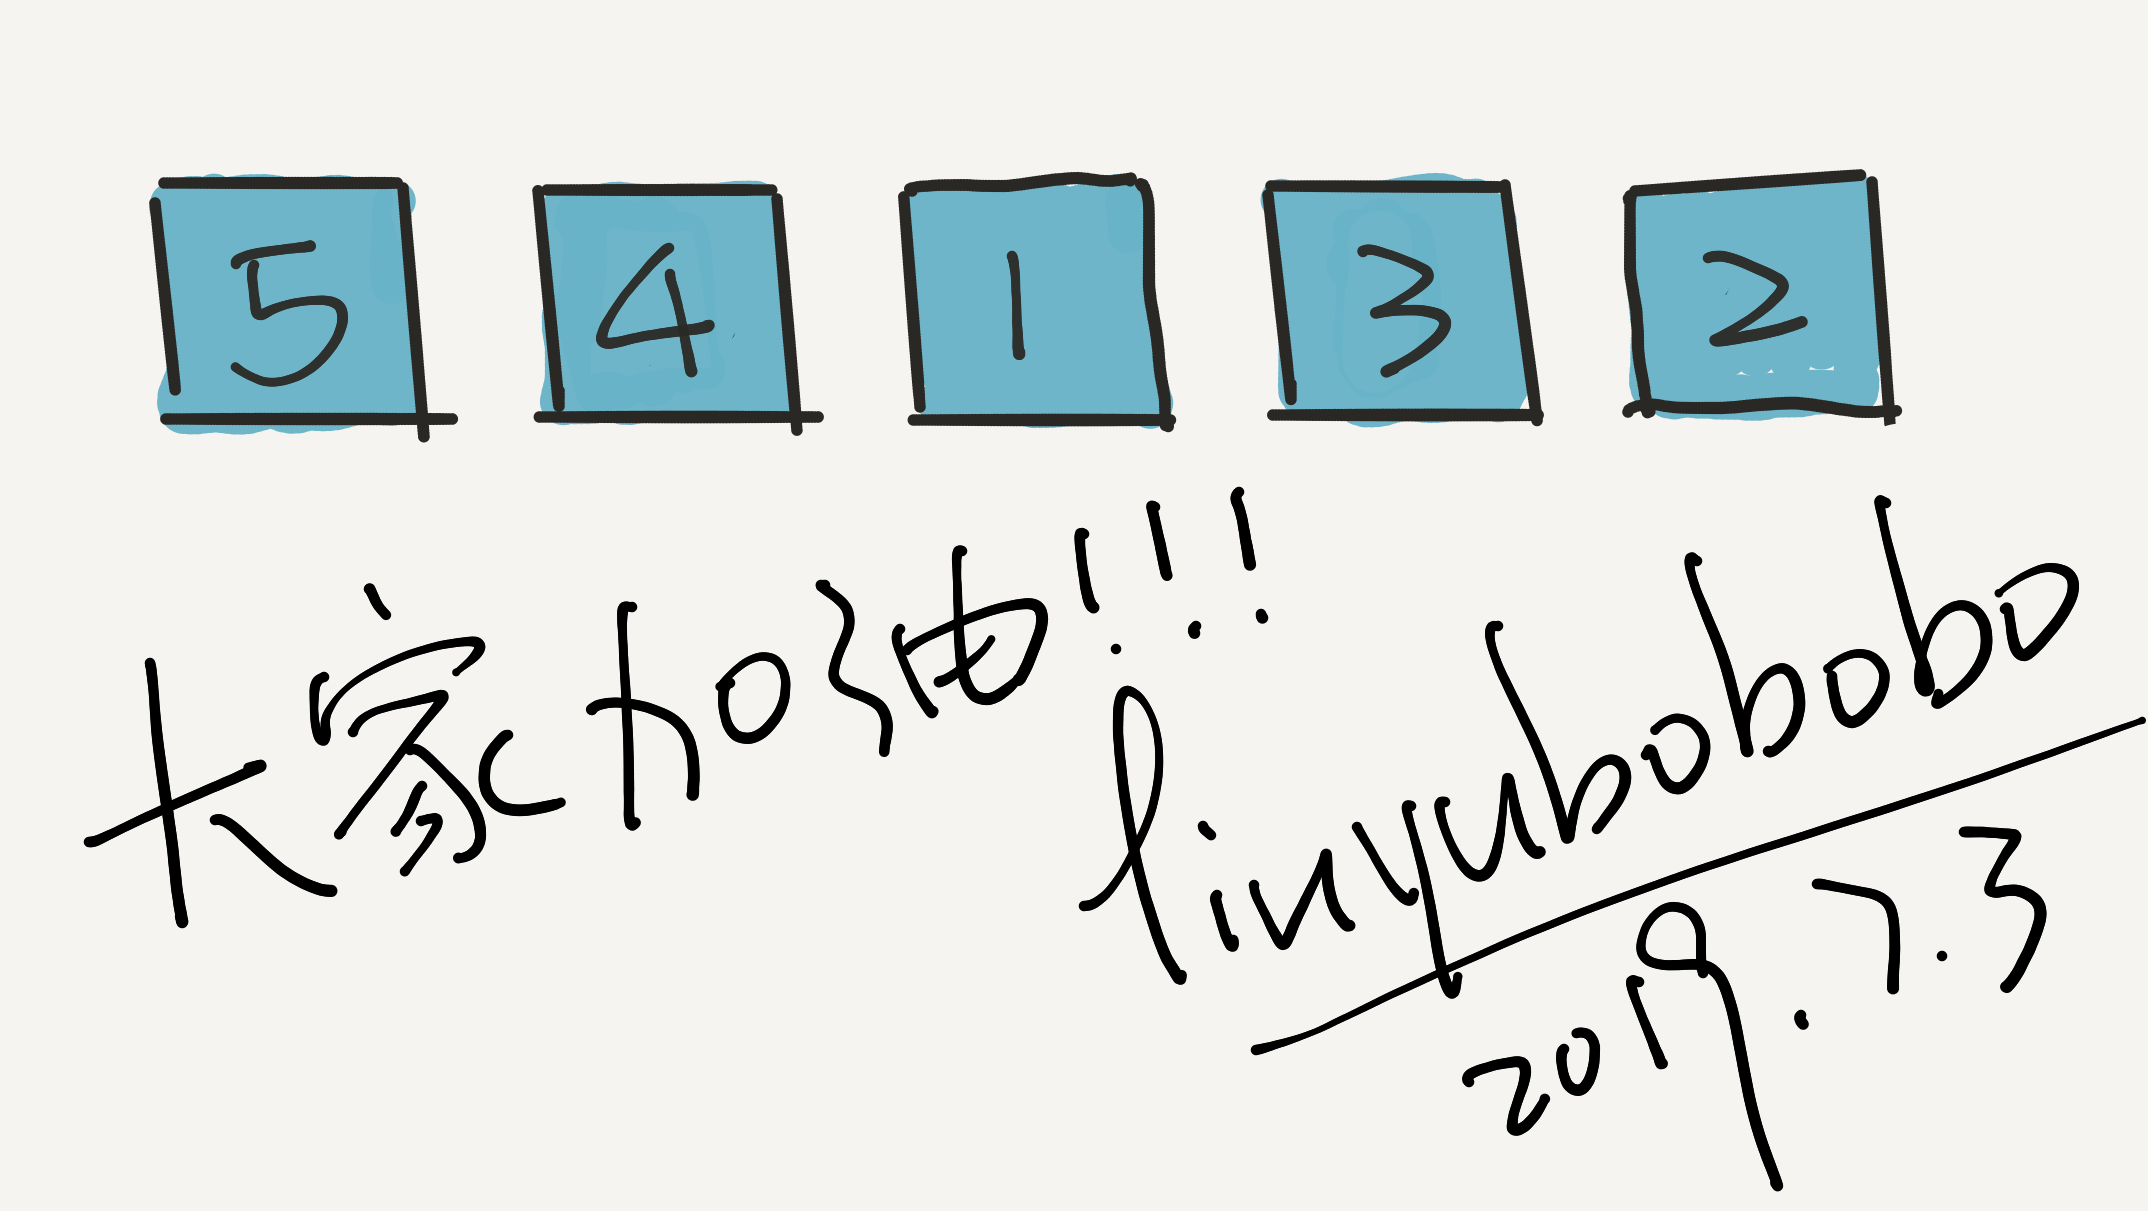 5 4 1 3 2
大家加油!!!
linyubobobo
2019.7.3